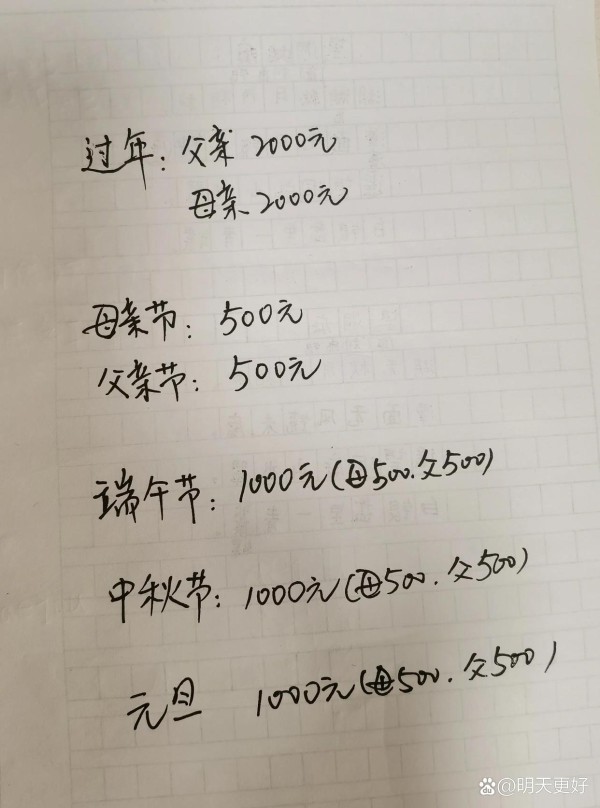 过年：父亲 2000元
母亲 2000元
母亲节：500元
父亲节：500元
端午节：1000元(母500.父500)
中秋节：1000元(母500.父500)
元旦 1000元(母500.父500)
@明天更好